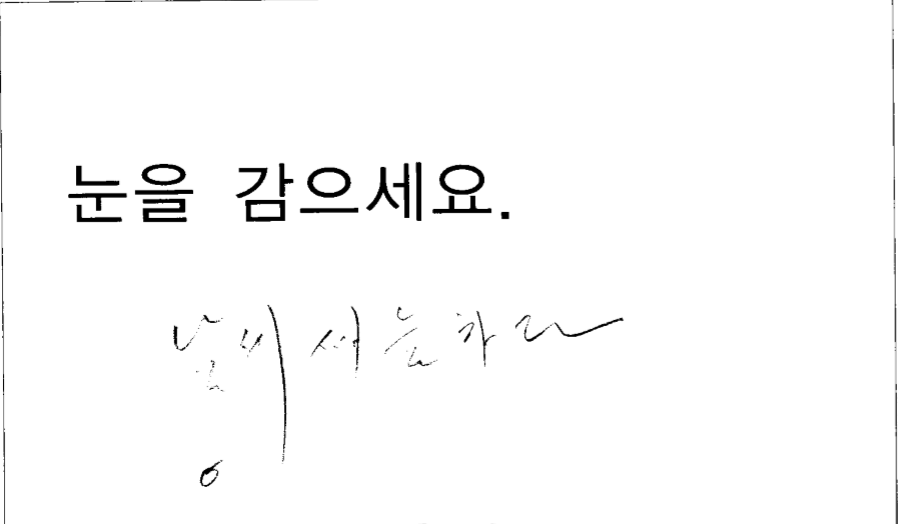 눈을 감으세요.
날씨 써늘하다